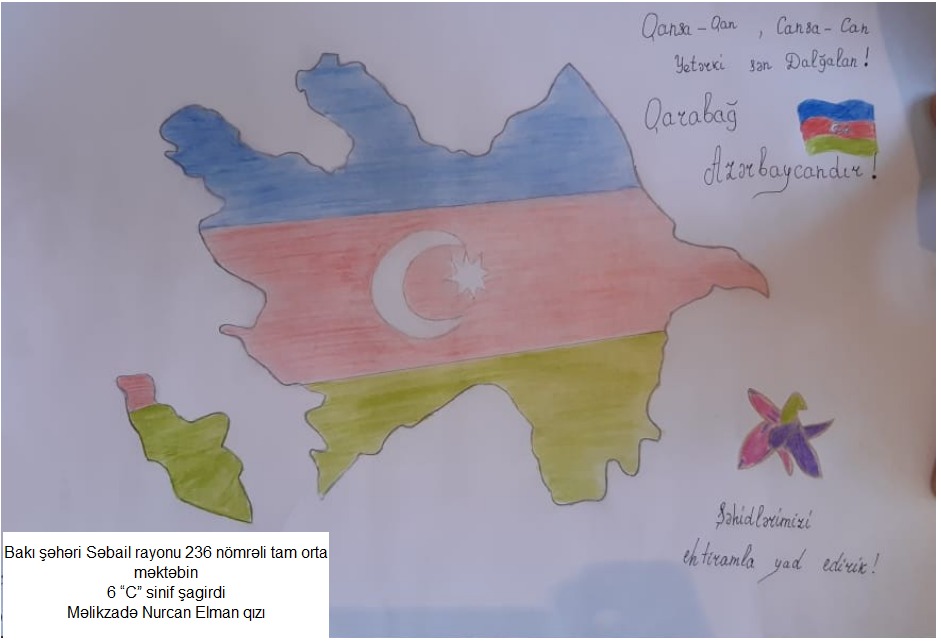 Qansa-Qan , Cansa-Can
Yetərki sən Dalğalan!
Qarabağ
Azərbaycandır!
Şəhidlərimizi
ehtiramla yad edirik!
Bakı şəhəri Səbail rayonu 236 nömrəli tam orta
məktəbin
6 “C” sinif şagirdi
Məlikzadə Nurcan Elman qızı